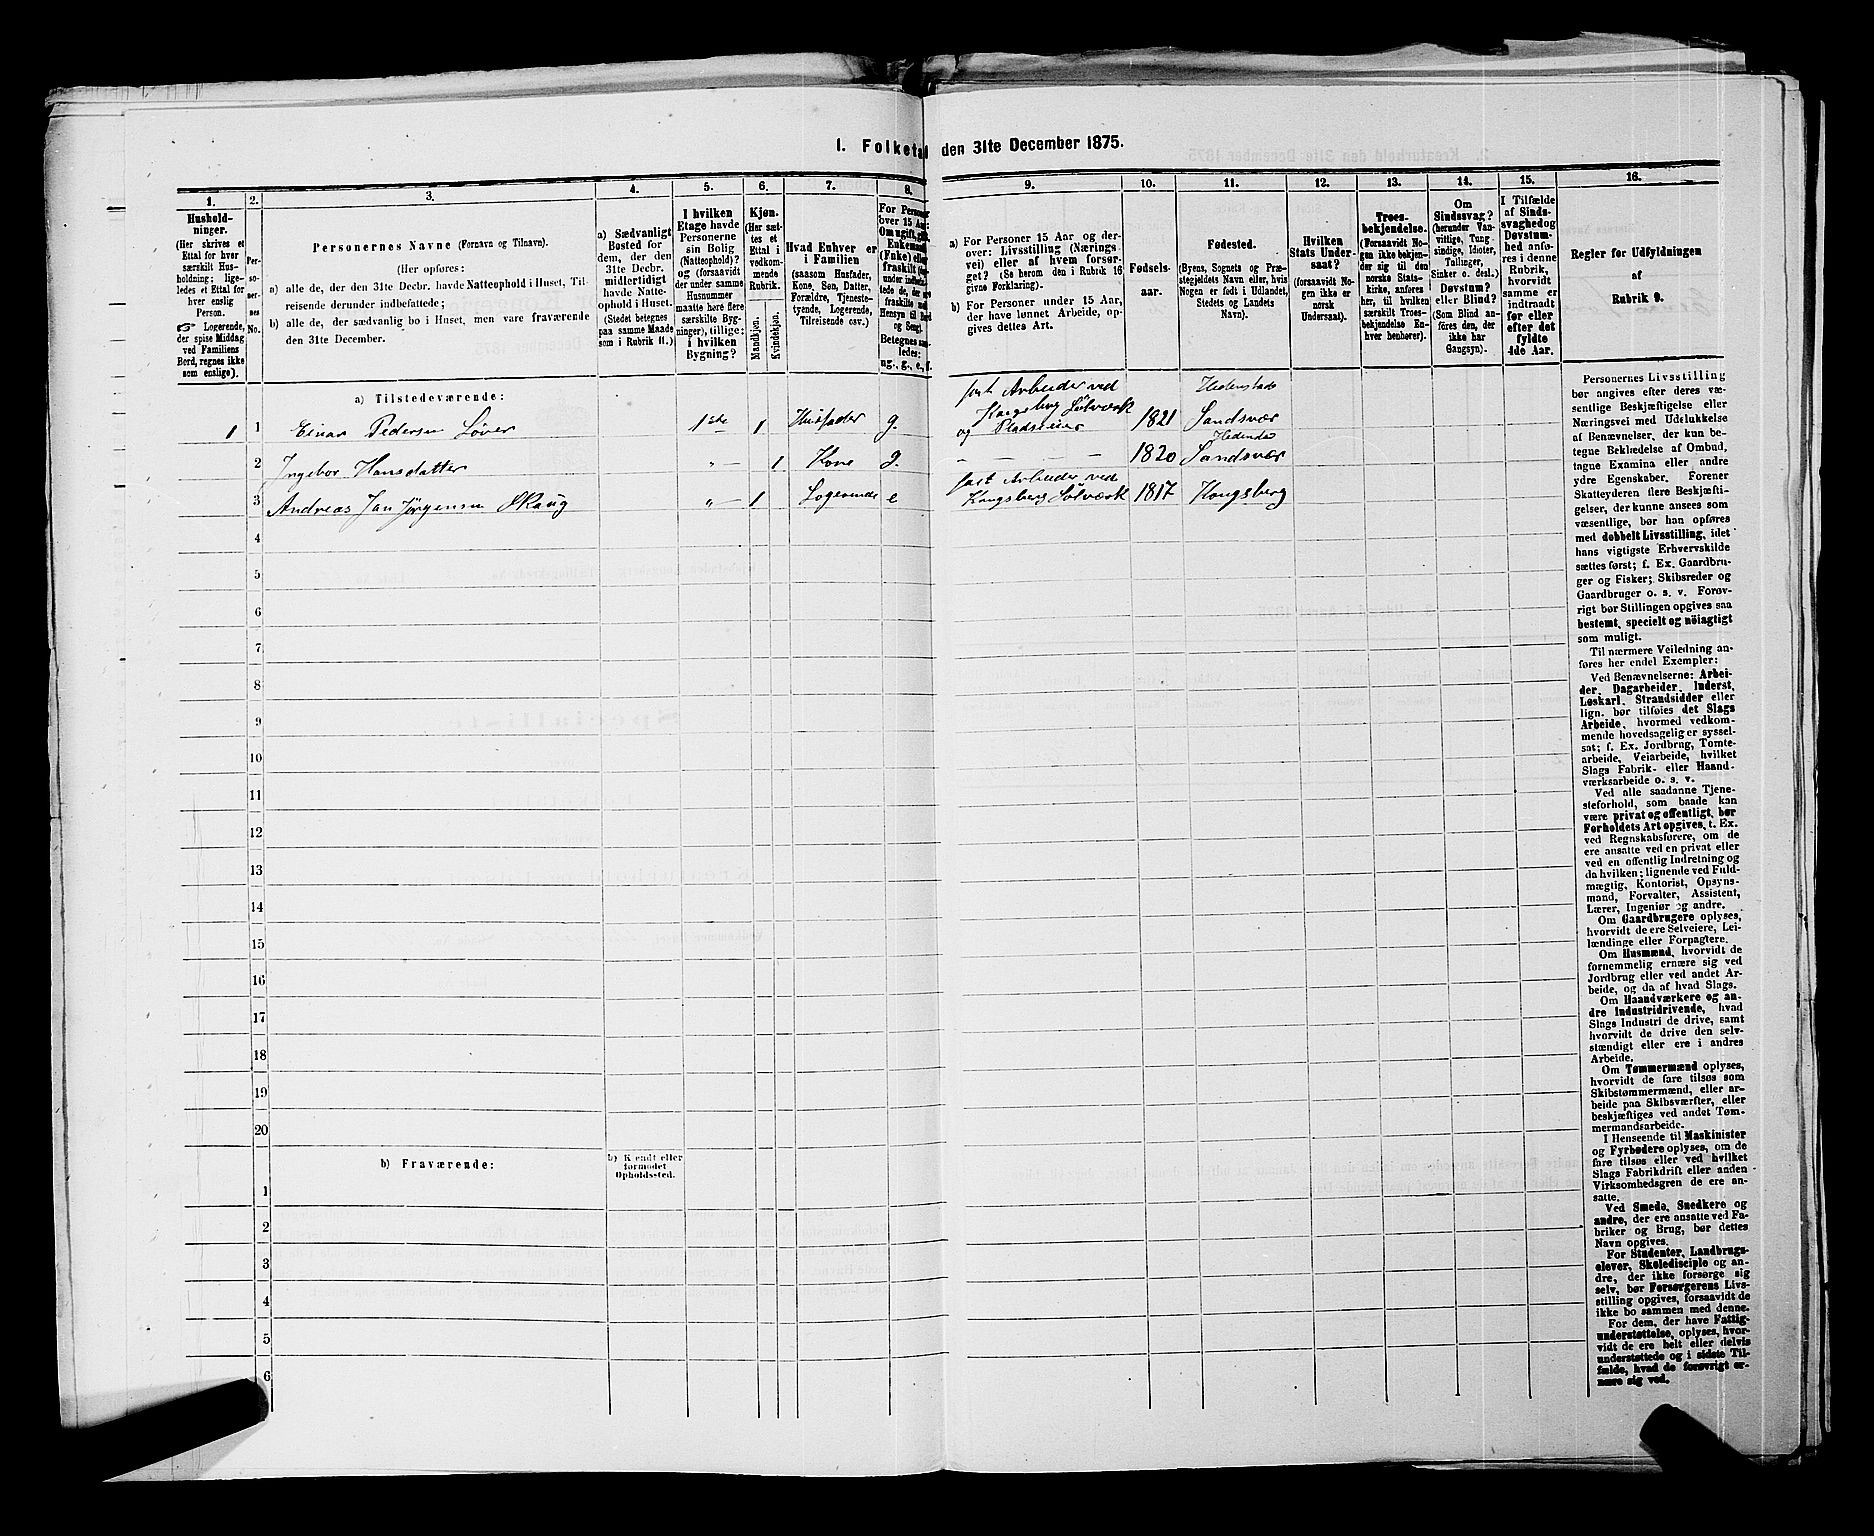 1. Folketal den 31te December 1875.
1. 2. 3. 4. 5. 6. 7. 8. 9. 10. 11. 12. 13. 14. 15. 16.
Hushold-
ninger.
(Her skrives et
Ettal for hver
særskilt Hus-
holdning; lige-
ledes et Ettal for
hver enslig
Person.
☞ Logerende,
der spise Middag
ved Familiens
Bord, regnes ikke
som enslige).
Per-
so-
ner-
nes
No.
Personernes Navne (Fornavn og Tilnavn).
(Her opføres:
a) alle de, der den 31te Decbr. havde Natteophold i Huset, Til-
reisende derunder indbefattede;
b) alle de, der sædvanlig bo i Huset, men vare fraværende
den 31te December.
a) Sædvanligt
Bosted for
dem, der den
31te Decbr.
midlertidigt
havde Natte-
ophold i Huset.
(Stedet betegnes
paa samme Maade
som i Rubrik 11.)
I hvilken
Etage havde
Personerne
sin Bolig
(Natteophold)?
og (forsaavidt
der under samme
Husnummer
maatte høre flere
særskilte Byg-
ninger), tillige:
i hvilken
Bygning?
Kjøn.
(Her sæt-
tes et
Ettal i
vedkom-
mende
Rubrik.
Mandkjøn.
Kvindekjøn.
Hvad Enhver er
i Familien
(saasom Husfader,
Kone, Søn, Datter,
Forældre, Tjeneste-
tyende, Logerende,
Tilreisende osv.)
For Personer
over 15 Aar:
Om ugift, gift,
Enkemand
(Enke) eller
fraskilt
Betegnes saa-
ledes:
ug., g., e., f.
a) For Personer 15 Aar og der-
over: Livsstilling (Nærings-
vei) eller af hvem forsør-
get? (Se herom den i Rubrik 16
givne Forklaring).
b) For Personer under 15 Aar,
der have lønnet Arbeide, op-
gives dettes Art.
Fødsels-
aar.
Fødested.
(Byens, Sognets og Præ-
stegjeldets Navn eller, hvis
Nogen er født i Udlandet,
Stedets og Landets
Navn).
Hvilken
Stats Under-
saat?
(forsaavidt No-
gen ikke er
norsk
Undersaat).
Troes-
bekjendelse.
(Forsaavidt No-
gen ikke bekjen-
der sig til den
norske Stats-
kirke, anføres
her, til hvilken
særskilt Troes-
bekjendelse En-
hver henhører).
Om
Sindssvag?
(herunder Van-
vittige, Tung-
sindige, Idioter,
Tullinger,
Sinker o. desl.)
Døvstum?
eller Blind?
(Som Blind an-
føres den, der
ikke har
Gangsyn).
I Tilfælde
af Sinds-
svaghed og
Døvstum-
hed anfø-
res i denne
Rubrik,
hvorvidt
samme er
indtraadt
før eller
efter det
fyldte
4de Aar.
Regler for Udfyldningen
af
Rubrik 9.
a) Tilstedeværende:
1 1 Einar Pedersen Løver 1ste 1 Husfader g. fast Arbeider ved Kongsberg Sölværk og Pladseier 1821 Hedenstads Sandsvær
2 Ingebor Hansdatter " — 1 Kone g. — — — — 1820 Hedenstad Sandsvær
3 Andreas Jan Jörgensen Skaug " — 1 Logerende e fast Arbeider ved Kongsberg Sölværk 1817 Kongsberg
4
5
6
7
8
9
10
11
12
13
14
15
16
17
18
19
20
b) Fraværende:
b) Kjendt eller
formodet
Opholdssted.
1
2
3
4
5
6
Personernes Livsstilling
bør angives efter deres væ-
sentlige Beskjæftigelse eller
Næringsvei med Udelukkelse
af Benævnelser, der kun be-
tegne Beklædelse af Ombud,
tagne Examina eller andre
ydre Egenskaber. Forener
Skatteyderen flere Beskjæfti-
gelser, der kunne ansees som
væsentlige, bør han opføres
med dobbelt Livsstilling, idet
hans vigtigste Erhvervskilde
sættes først; f. Ex. Gaardbru-
ger og Fisker; Skibsreder og
Gaardbruger o. s. v. Forøv-
rigt bør Stillingen opgives saa
bestemt, specielt og nöiagtigt
som muligt.
Til nærmere Veiledning an-
føres her endel Exempler:
Ved Benævnelserne: Arbei-
der, Dagarbeider, Inderst,
Løskarl, Strandsidder eller
lign. bør tilføies det Slags
Arbeide, hvormed vedkom-
mende hovedsagelig er syssel-
sat; f. Ex. Jordbrug, Tomte-
arbeide, Veiarbeide, hvilket
Slags Fabrik- eller Haand-
værksarbeide o. s. v.
Ved alle saadanne Tjene-
steforhold, som baade kan
være privat og offentligt, bør
Forholdets Art opgives, t. Ex.
ved Regnskabsførere, om de
ere ansatte ved en privat eller
ved en offentlig Indretning og
da hvilken; lignende ved Fuld-
mægtig, Kontorist, Opsyns-
mand, Forvalter, Assistent,
Lærer, Ingeniør og andre.
Om Gaardbrugere oplyses,
hvorvidt de ere Selveiere, Lei-
lændinge eller Forpagtere.
Om Husmænd, hvorvidt de
fornemmelig ernære sig ved
Jordbrug eller ved andet Ar-
beide, og da af hvad Slags.
Om Haandværkere og an-
dre Industridrivende, hvad
Slags Industri de drive, samt
hvorvidt de drive den selv-
stændigt eller ere i andres
Arbeide.
Om Tømmermænd oplyses,
hvorvidt de fare tilsøs som
Skibstømmermænd, eller ar-
beide paa Skibsværfter, eller
beskjæftiges ved andet Tøm-
mermandsarbeide.
I Henseende til Maskinister
og Fyrbødere oplyses, om de
fare tilsøs eller ved hvilket
Slags Fabrikdrift eller anden
Virksomhedsgren de ere an-
satte.
Ved Smede, Snedkere og
andre, der ere ansatte ved Fa-
briker og Brug, bør dettes
Navn opgives.
For Studenter, Landbrugs-
elever, Skoledisciple og an-
dre, der ikke forsørge sig
selv, bør Forsørgerens Livs-
stilling opgives, forsaavidt de
ikke bo sammen med denne.
For dem, der have Fattig-
understøttelse, oplyses, hvor-
vidt de ere helt eller delvis
understøttede og i sidste Til-
fælde, hvad de forøvrigt er-
nære sig ved.